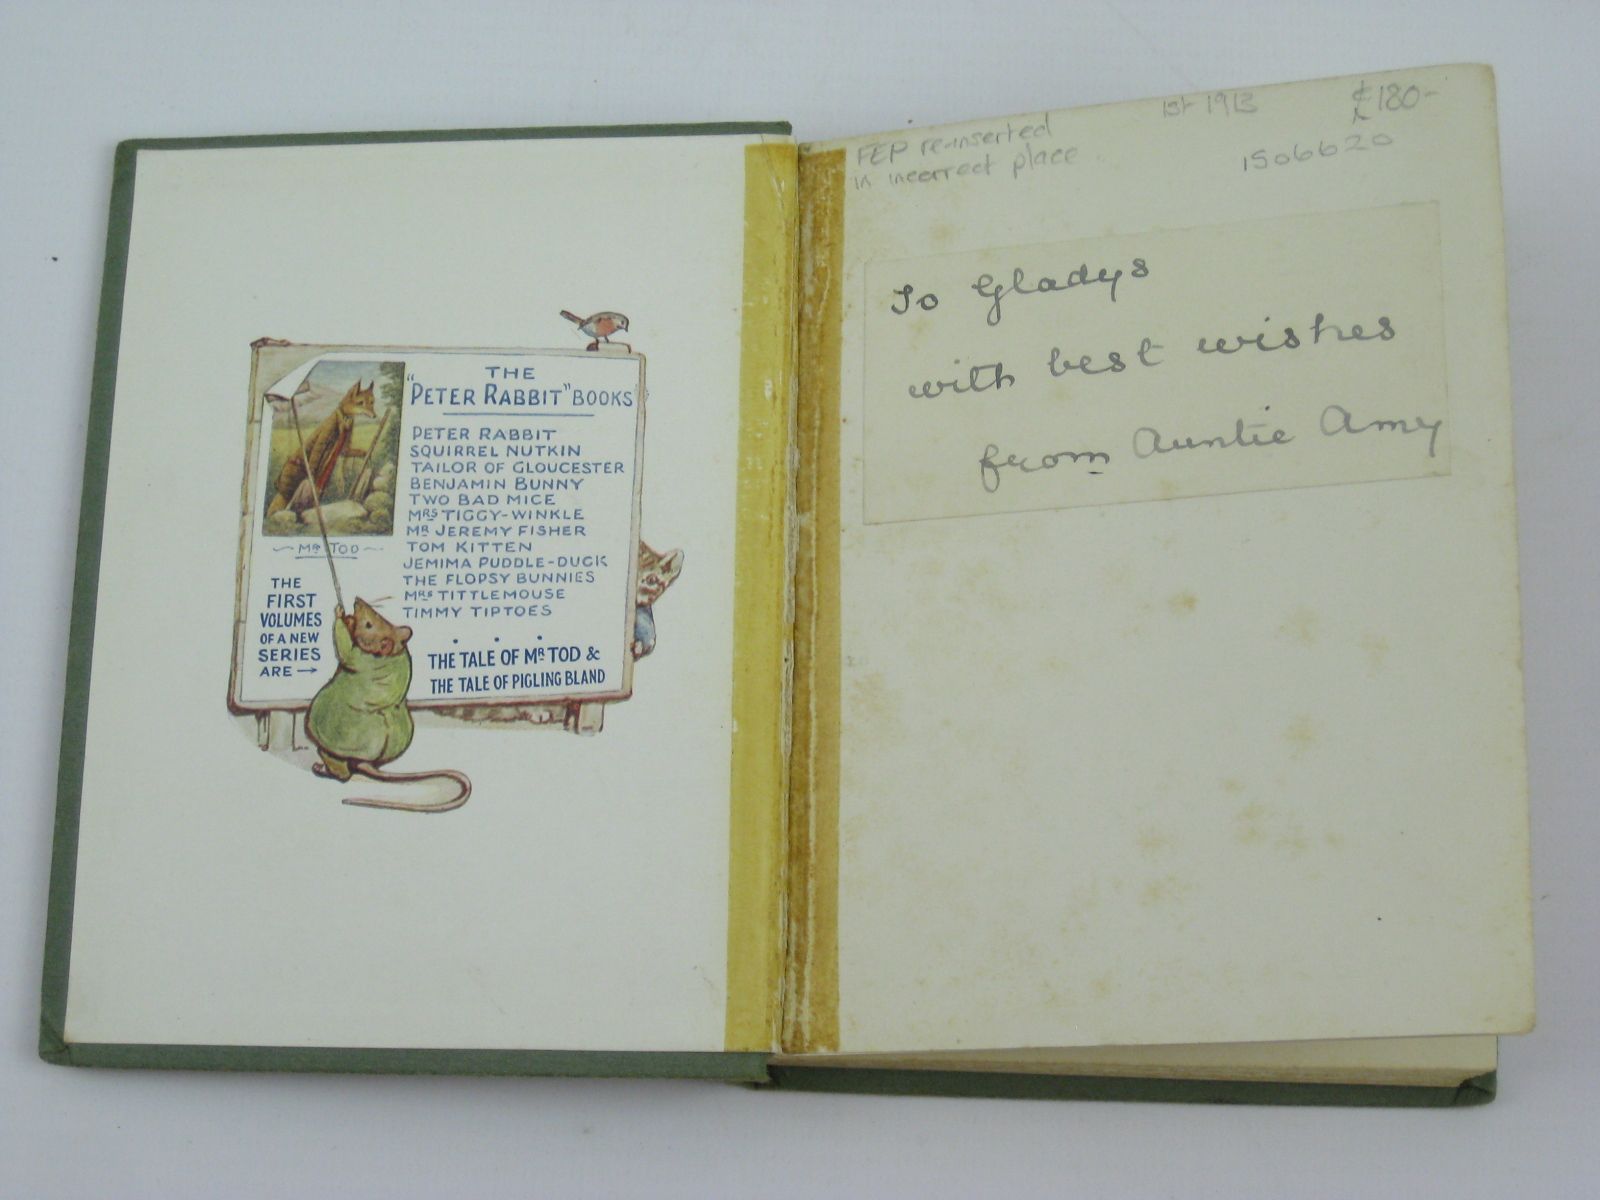 THE
"PETER RABBIT" BOOKS
PETER RABBIT
SQUIRREL NUTKIN
TAILOR OF GLOUCESTER
BENJAMIN BUNNY
TWO BAD MICE
MRS TIGGY-WINKLE
MR JEREMY FISHER
TOM KITTEN
JEMIMA PUDDLE-DUCK
THE FLOPSY BUNNIES
MRS TITTLEMOUSE
TIMMY TIPTOES
MR TOD
THE
FIRST
VOLUMES
OF A NEW
SERIES
ARE →
THE TALE OF MR TOD &
THE TALE OF PIGLING BLAND
FEP re-inserted
in incorrect place
1st 1913
£180-
1506620
To Gladys
with best wishes
from Auntie Amy